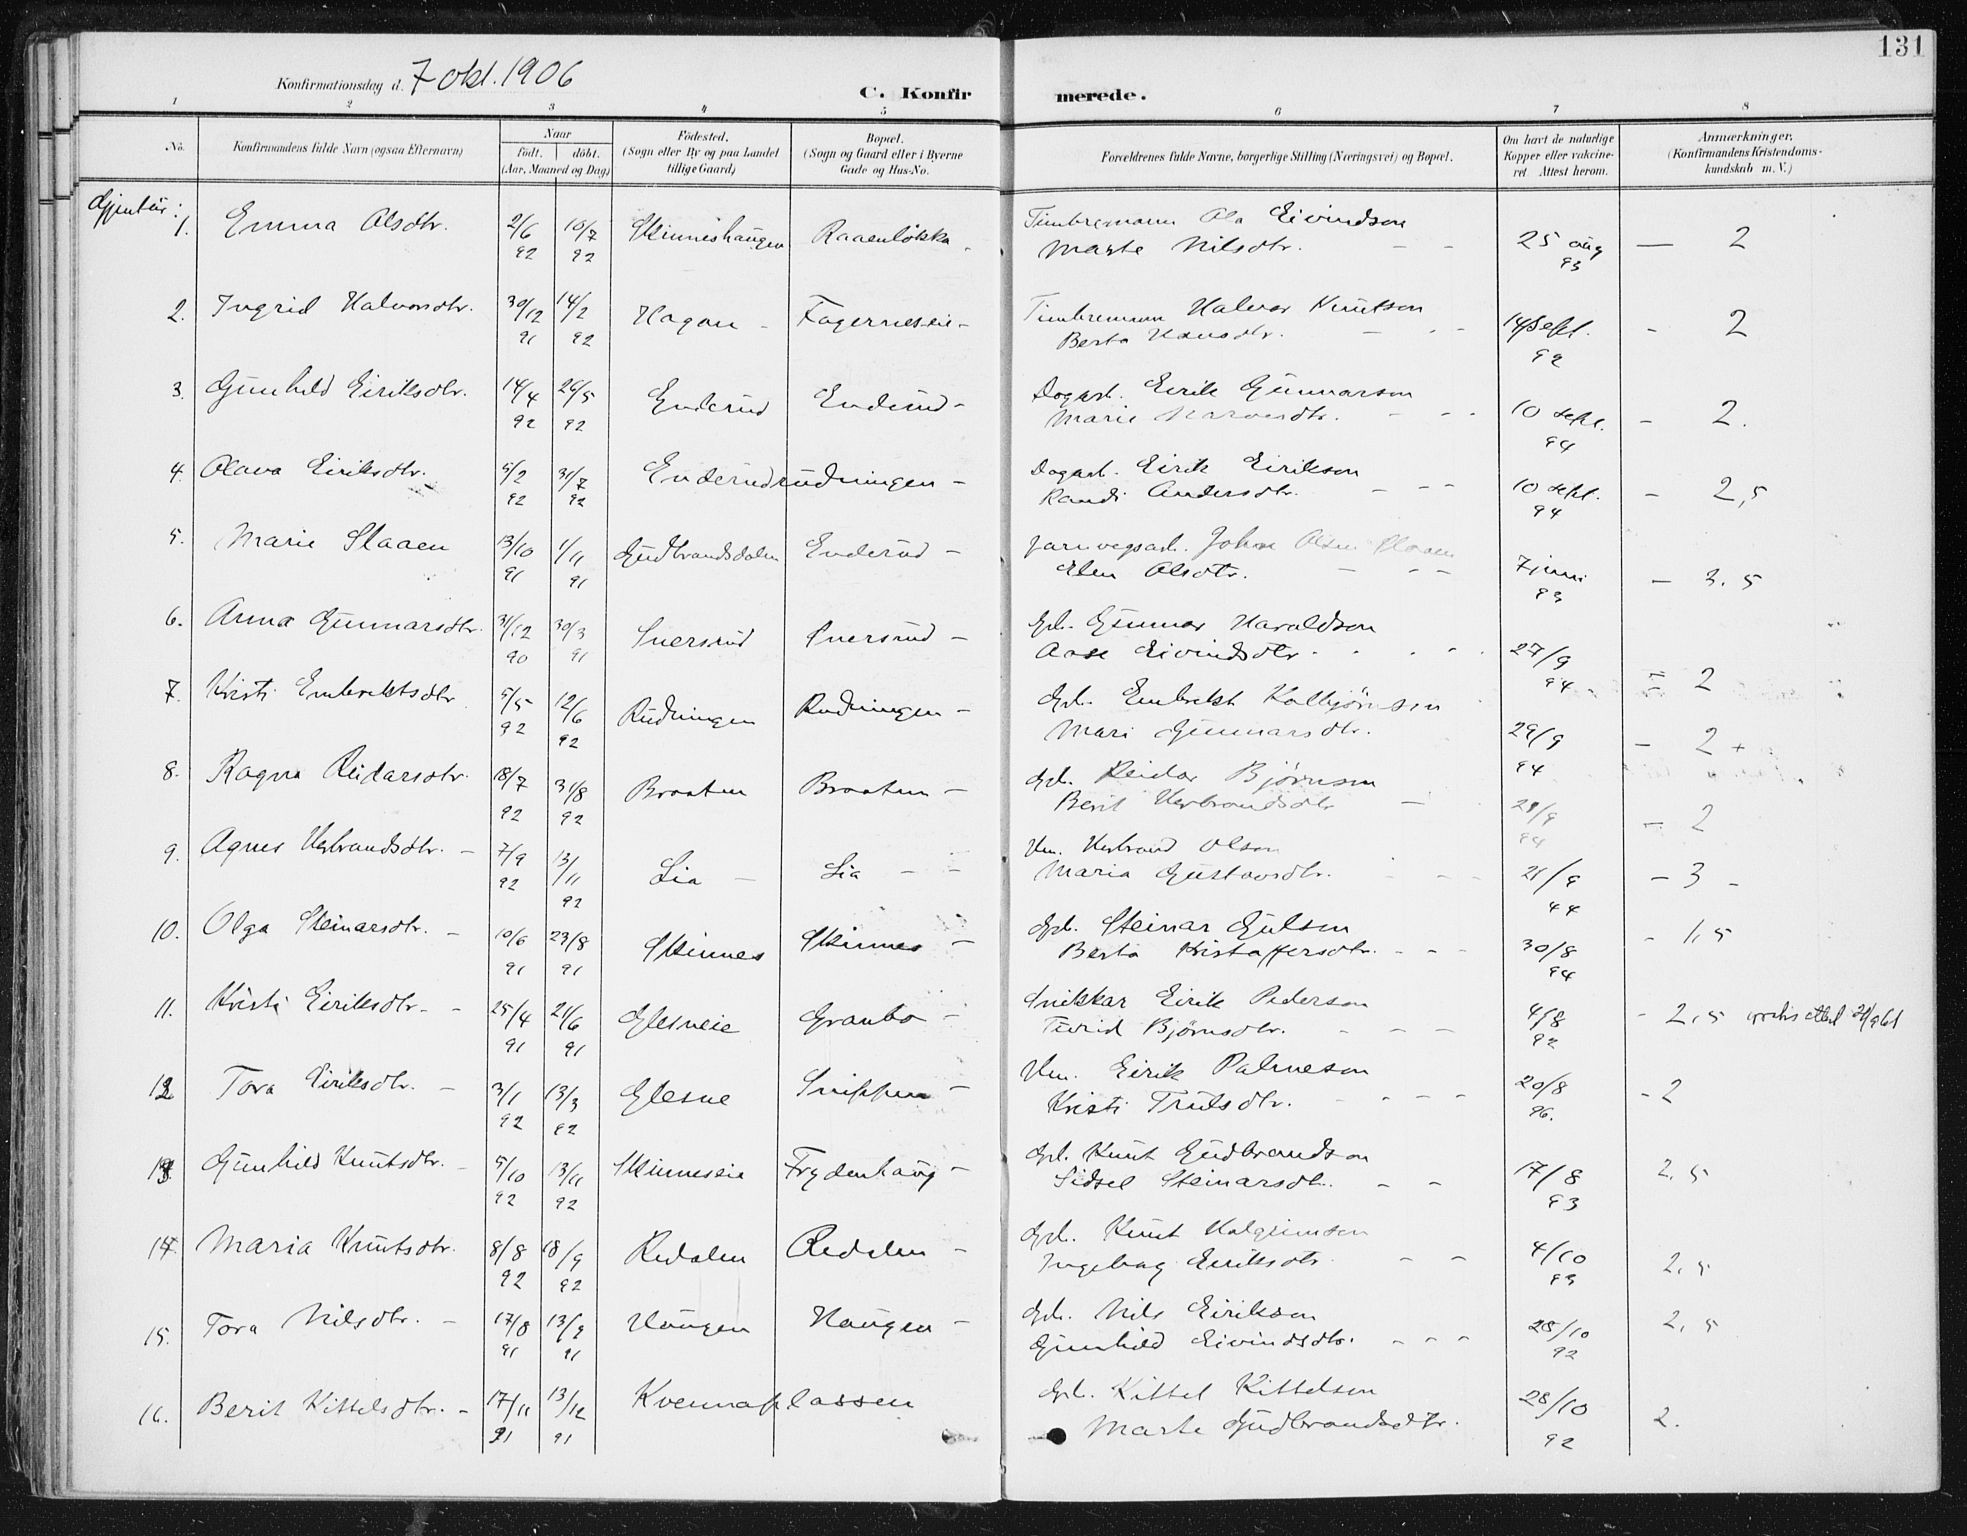 131
Konfirmationsdag d. 7 okt. 1906
C. Konfirmerede.
1 2 3 4 5 6 7 8
No. | Konfirmandens fulde Navn (ogsaa Efternavn) | Naar födt. döbt. (Aar, Maaned og Dag) | Födested. (Sogn eller By og paa Landet tillige Gaard) | Bopæl. (Sogn og Gaard eller i Byerne Gade og Hus-No. | Forældrenes fulde Navne, borgerlige Stilling (Næringsvei) og Bopæl. | Om havt de naturlige Kopper eller vakcineret Attest herom. | Anmærkninger. (Konfirmandens Kristendomskundskab m. V.)
Gjentur:
1. Emma Olsdtr. 2/6 92 10/7 92 Skinneshaugen Raaenløkka Timbremann Ola Eivindson Marte Nilsdtr. - - 25 aug 93 — 2
2. Ingrid Halvorsdtr. 30/12 91 14/2 92 Hagan - Fagerneseie - Timbremann Halvor Knutson Berta Hansdtr. - - - 14 Sept. 92 - 2
3. Gunhild Eiriksdtr. 14/4 92 26/5 92 Enderud Enderud - Dagarb. Eirik Gunnarson Marie - - - 10 sept. 94 - 2.
4. Olava Eiriksdtr. 5/2 92 31/7 92 Enderudrudningen - Dagarb. Eirik Eirikson Randi Andersdtr. - - - 10 sept. 94 - 2,5
5. Marie Slaaen 13/10 91 1/11 91 Gudbrandsdalen Enderud - Jarnvegsarb. Johan Olsen Slaaen Elen Olsdtr. - - - 7 juni 93 - 3.5
6. Anna Gunnarsdtr. 31/12 90 30/3 91 Snersrud Snersrud - Gbr. Gunnar Haraldson Aase Eivindsdtr. 27/9 94 - 2
7. Kristi Embriktsdtr 5/5 92 12/6 92 Rudningen Rudningen - Gbr. Embrikt Kolbjørnson Mari Gunnarsdtr. 29/9 94 - 2 +
8. Ragna Reidarsdtr. 18/7 92 31/8 92 Braaten Braaten - Gbr. Reidar Bjørnson Berit Herbrandsdtr - 29/9 94 - 2
9. Agnes Herbrandsdtr. - 7/9 92 13/11 92 Lia - Lia - - Hm. Herbrand Olson Maria Gustavsdtr. - - 21/9 44 - 3 -
10. Olga Steinarsdtr. - 10/6 91 23/8 91 Skinnes Skinnes - Gbr. Steinar Gulson Berta Kristoffersdtr. - - - 30/8 94 - 1,5
11. Kristi Eiriksdtr. - 25/4 91 21/6 91 Glesneie Granbo - Snikkar Eirik Pederson Turid Bjørnsdtr. - - - 4/8 92 - 2,5
12 Tora Eiriksdtr. - 3/1 92 13/3 92 Glesne Snippen - Hm. Eirik Palmeson Kristi Trulsdtr. - - - - 20/8 96. - 2
13 Gunhild Knutsdtr. - 5/10 92 13/11 92 Skinneseie Frydenhaug - Gbr. Knut Gudbrandson Sidsel Steinarsdtr. - - 17/8 93 2,5
14. Maria Knutsdtr. 8/8 92 18/9 92 Redalen Redalen - Gbr. Knut Halgrimson Ingebørg Eiriksdtr - - 4/10 93 2,5
15. Tora Nilsdtr. - 17/8 91 13/9 91 Haugen Haugen - Gbr. Nils Eirikson Gunhild Eivindsdtr. - - - 28/10 92 2,5
16. Berit Kittelsdtr. - 17/11 91 13/12 91 Kvennaplassen Gbr. Kittel Kittelson Marte Gudbrandsdtr. 28/10 92 2.